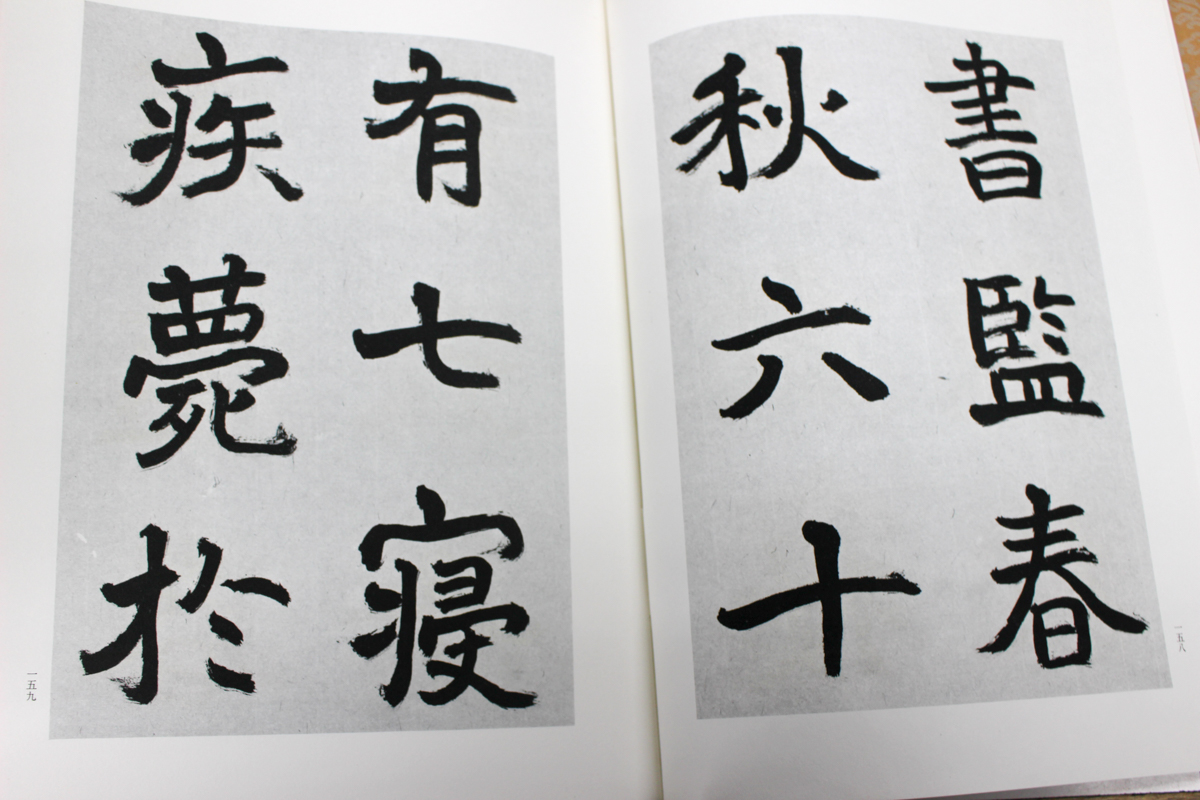 書監春
秋六十
一五八
有七寝
疾薨於
一五九